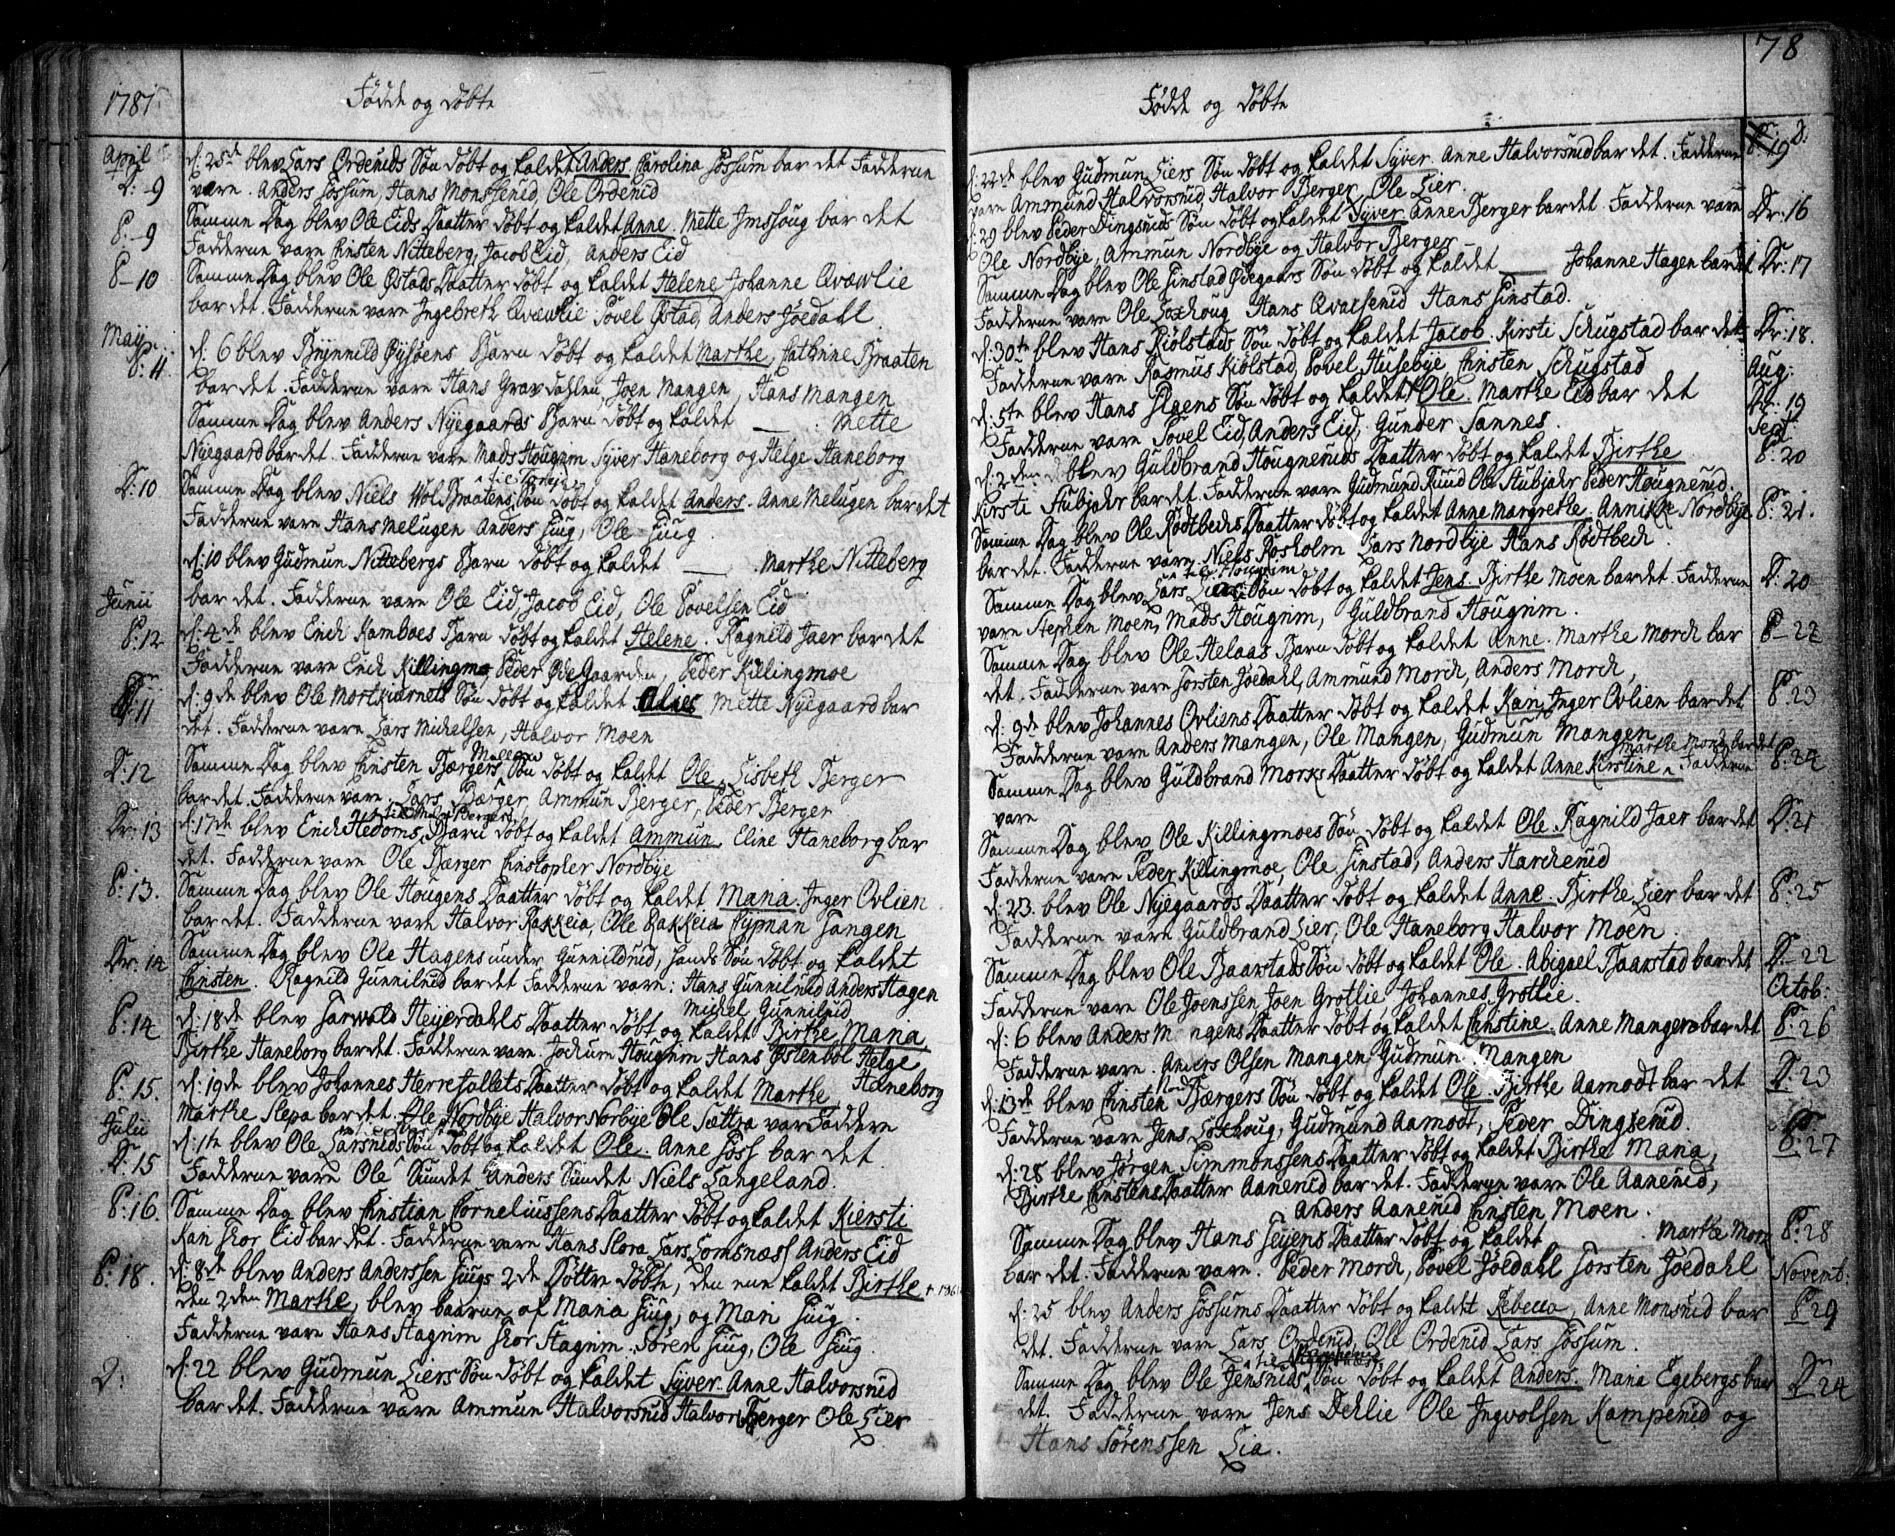 1781
Fødde og døbte
April
d: 25de blev Lars Orderuds Søn døbt og kaldet Anders. Carolina Fossum bar det Fadderne
D: 9
vare. Anders Fossum, Hans Monssenud, Ole Orderud
Samme Dag blev Ole Eids Daatter døbt og kaldet Anne. Mette Imshoug bar det
P: 9
Fadderne vare Christen Nitteberg, Jacob Eid, Anders Eid
P-10
Samme Dag blev Ole Østads Daatter døbt og kaldet Helene Johanne Qvævlie
bar det. Fadderne vare Ingebreth Qvævlie Povel Østad, Anders Jôedahl
May
d: 6 blev Brynnild Barn døbt og kaldet Marthe, Cathrine Braaten
P: 11.
bar det. Fadderne vare Hans Gravdahlen, Joen Mangen, Hans Mangen
Samme Dag blev Anders Nyegaards Barn døbt og kaldet — . Mette
Nyegaard bar det. Fadderne vare Mads Hougnim Syver Haneborg og Helge Haneborg
D: 10
Samme Dag blev Niels Braatens Søn døbt og kaldet Anders. Anne Melugen bar det
Fadderne vare Hans Melugen Anders Juug, Ole Juug
d: 10 blev Gudmun Nittebergs Barn døbt og kaldet — . Marthe Nitteberg
bar det. Fadderne vare Ole Eid, Jacob Eid, Ole Povelsen Eid
Junii
P: 12
d: 4de blev Erich Kamboes Barn døbt og kaldet Helene. Ragnild Jaer bar det
Fadderne vare Erich Killingmo Peder ØdeGaarden, Peder Killingmoe
D: 11
d: 9de blev Ole Mortkiærnets Søn døbt og kaldet . Mette Nyegaard bar
det. Fadderne vare Lars Michelsen, Halvor Moen
D: 12
Samme Dag blev Christen Bærgers Søn døbt og kaldet Ole. Lisbeth Berger
bar det. Fadderne vare, Lars Bærger, Ammun Berger, Peder Berger
Dr: 13
d: 17de blev Erich Hedoms Barn døbt og kaldet Ammun. Eline Haneborg bar
det. Fadderne vare Ole Bærger Christopher Nordbye
P: 13.
Samme Dag blev Ole Hougens Daatter døbt og kaldet Maria. Inger Ovlien
bar det. Fadderne vare Halvor Rakkeia, Ole Rakkeia Sypman Tangen
Dr: 14
Samme Dag blev Ole Hagens under Gunnildrud, Søn døbt og kaldet
Christen. Ragnild Gunnilrud bar det Fadderne vare: Hans Gunnilrud Anders Hagen
Michel Gunnilrud
P: 14
d: 18de blev Torwald Heyerdahls Daatter døbt og kaldet Birthe Maria
Birthe Haneborg bar det. Fadderne vare. Jochum Hougnim Hans Østenbøl Helge
Haneborg
P: 15.
d: 19de blev Johannes Herrefallets Daatter døbt og kaldet Marthe
Marthe Slepa bar det. Ole Nordbye Halvor Norbye Ole Sættra var Faddere
Julii
D: 15
d: 1te blev Ole Larsruds Søn døbt og kaldet Ole. Anne Foss bar det
Fadderne vare Ole Sundet Anders Sundet Niels Langeland.
P: 16.
Samme Dag blev Christian Corneliussens Daatter døbt og kaldet Kiersti
Kari Thor Eid bar det. Fadderne vare Hans Slora Lars Lomsnæss Anders Eid
P: 18.
d: 8de blev Anders Anderssen Juugs 2de Døttre døbte, den ene kaldet Birthe
den 2den Marthe, blev baarne af Maria Juug, og Mari Juug.
Fadderne vare Hans Stagrim Thor Stagrim. Søren Juug, Ole Juug.
D:
d: 22 blev Gudmun Liers Søn døbt og kaldet Syver. Anne Halvorsrud
bar det. Fadderne vare Ammun Halvorsrud Halvor Berger Ole Lier
78
Fødde og døbte
D: 19
d: 22de blev Gudmun Liers Søn døbt og kaldet Syver. Anne Halvorsrud bar det. Fadderne
vare Ammund Halvorsrud, Halvor Berger, Ole Lier.
Dr: 16
d: 29 blev Peder Dingsruds Søn døbt og kaldet Syver Anne Berger bar det. Fadderne vare
Ole Nordbye, Ammun Nordbye og Halvor Berger
Dr: 17
Samme Dag blev Ole Finstad Ødegaars Søn døbt og kaldet — Johanne Hagen bar det
Fadderne vare Ole Loxhoug Hans Qvalserud Hans Finstad.
Dr: 18.
d: 30te blev Hans Kiølstads Søn døbt og kaldet Jacob. Kirsti Schugstad bar det
Fadderne vare Rasmus Kiølstad, Povel Husebye Christen Schugstad
Aug:
Dr: 19
d: 5te blev Hans Søn døbt og kaldet Ole. Marthe Eid bar det
Fadderne vare Povel Eid, Anders Eid, Gunder Sannes.
Sept
P: 20
d: 2den blev Guldbrand Hougneruds Daatter døbt og kaldet Birthe
Kirsti Stubjahr bar det. Fadderne vare Gudmund Ruud Ole Stubjahr Peder Hougnerud.
P: 21.
Samme Dag blev Ole Rødtbechs Daatter døbt og kaldet Anne Margrethe. Annikke Nordbye
bar det. Fadderne vare Niels Rosholm Lars Nordbye Hans Rødtbech.
D: 20
Samme Dag blev Lars Søn døbt og kaldet Jens. Birthe Moen bar det. Fadderne
vare Stephen Moen, Mads Hougnim, Guldbrand Hougnim.
P-22
Samme Dag blev Ole Helaas Barn døbt og kaldet Anne. Marthe Morch bar
det. Fadderne vare Torsten Jôedahl, Ammund Morch, Anders Morch,
P: 23
d: 9de blev Johannes Ovliens Daatter døbt og kaldet Kari, Inger Ovlien bar det
Fadderne vare Anders Mangen, Ole Mangen, Gudmun Mangen
Marthe Mork bar det
P: 24
Samme Dag blev Guldbrand Morks Daatter døbt og kaldet Anne Kirstine. Fadderne
vare
D: 21
Samme Dag blev Ole Killingmoes Søn døbt og kaldet Ole. Ragnild Jaer bar det
Fadderne vare Peder Killingmoe, Ole Finstad, Anders Harcherud
P: 25
d: 23. blev Ole Nyegaards Daatter døbt og kaldet Anne. Birthe Lier bar det
Fadderne vare Guldbrand Lier, Ole Haneborg Halvor Moen.
D-22
Samme Dag blev Ole Baarstads Søn døbt og kaldet Ole. Abigael Baarstad bar det
Fadderne vare Ole Joenssen, Joen Grøtlie, Johannes Grøtlie.
Octob:
P: 26
d: 6 blev Anders Mangens Daatter døbt og kaldet Christine. Anne Mangen bar det
Fadderne vare. Anders Olsen Mangen Gudmun Mangen
D: 23
d: 13de blev Christen Bærgers Søn døbt og kaldet Ole. Birthe Aamodt bar det
Fadderne vare Jens Loxhoug, Gudmund Aamodt, Peder Dingserud.
P: 27
d: 28 blev Jørgen Simmonssens Daatter døbt og kaldet Birthe Maria,
Birthe Christens Daatter Aanerud bar det. Fadderne vare Ole Aanerud,
Anders Aanerud Christen Moen.
P: 28
Samme Dag blev Hans Daatter døbt og kaldet . Marthe Morch
bar det. Fadderne vare. Peder Morch, Povel Jôedahl Torsten Jôedahl
Novemb:
P: 29
d: 25 blev Anders Fossums Daatter døbt og kaldet Rebecca, Anne Monsrud bar
det. Fadderne vare Lars Orderud, Ole Orderud Lars Fossum.
D: 24
Samme Dag blev Ole Jensruds Søn døbt og kaldet Anders. Maria Egebergs bar
det. Fadderne vare Jens Dehlie Ole Ingvolsen Kamperud og
Hans Sørenssen Lia.